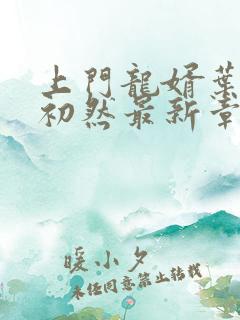 上門龍婿葉
初然最新章
暖小夕
未经同意禁止转载